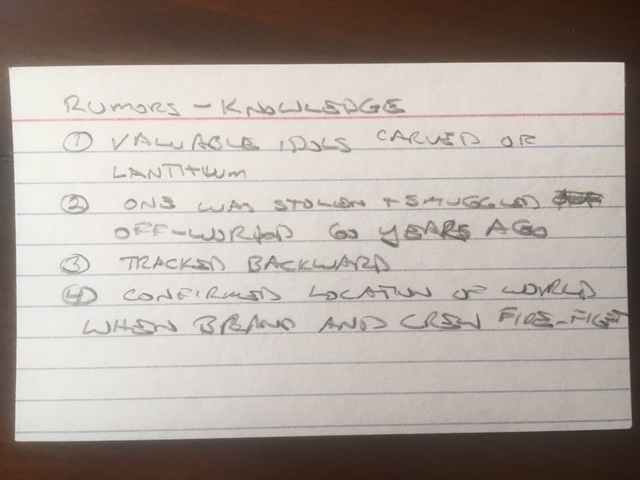 RUMORS - KNOWLEDGE
① VALUABLE IDOLS CARVED OF
LANTITUM
② ONE WAS STOLEN + SMUGGLED
OFF-WORLD 60 YEARS AGO
③ TRACKED BACKWARD
④ CONFIRMED LOCATION OF WORLD
WHEN BRAND AND CREW FIRE-FIGHT